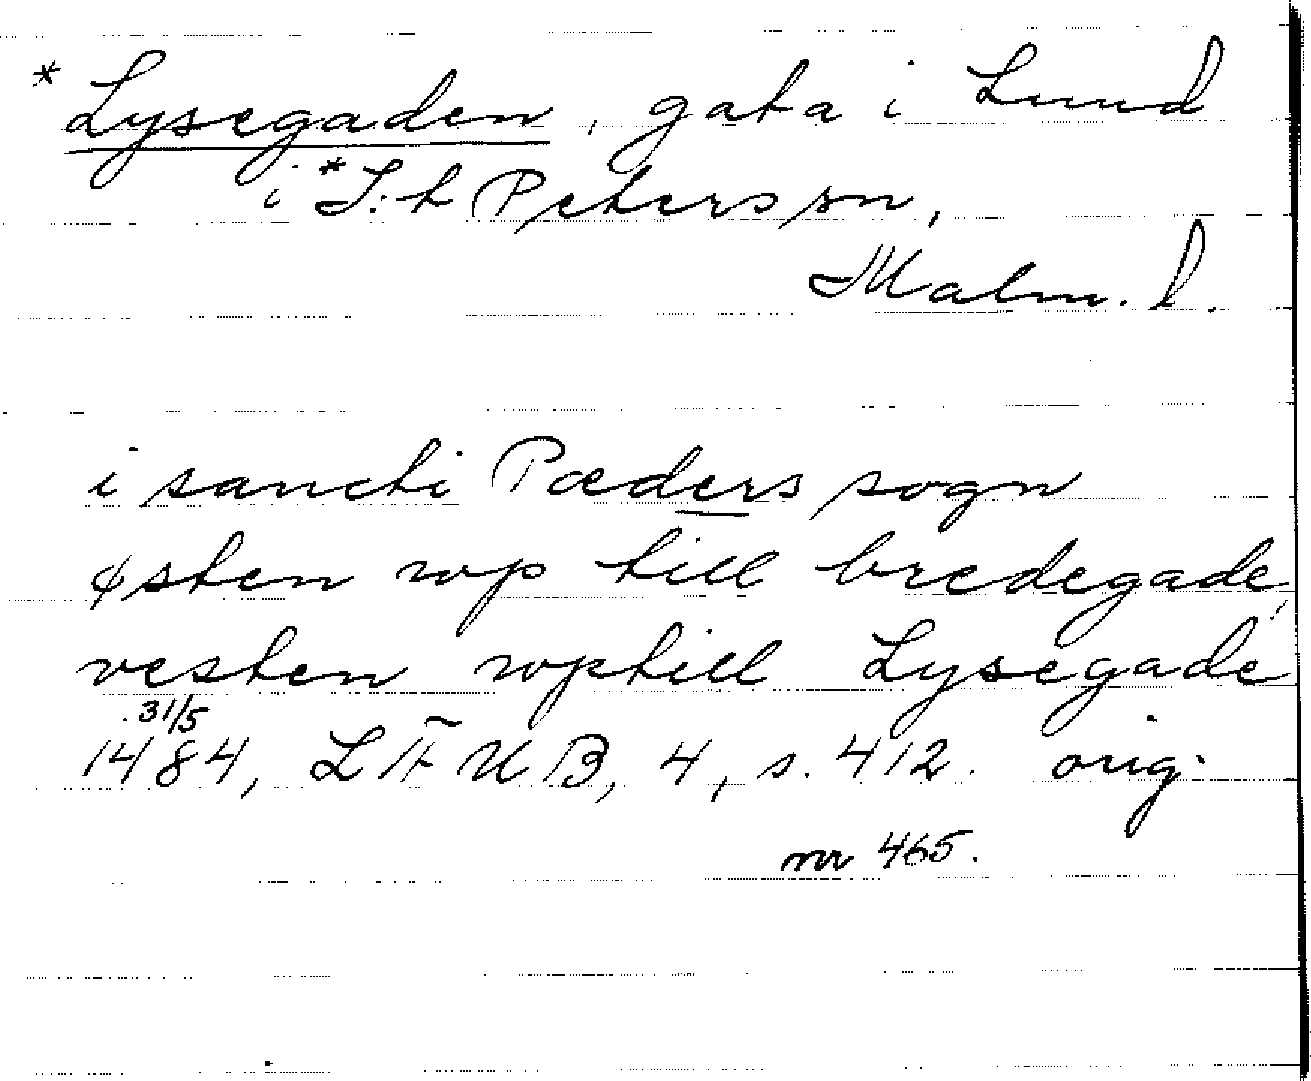 * Lysegaden, gata i Lund
i *S:t Peters sn,
Malm. l.
i sancti Pæders sogn
østen wp till bredegade,
vesten wptill Lysegade
31/5
1484, LÄUB, 4, s. 412. orig.
nr 465.